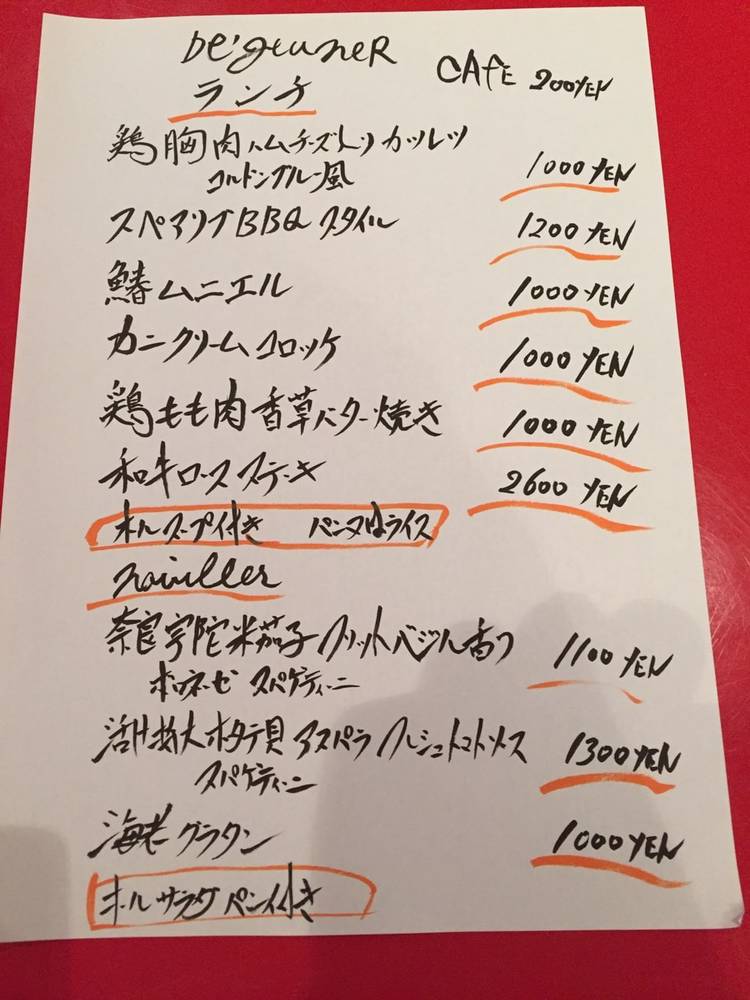 ランチ
CAFE 200YEN
鶏胸肉ハムチーズ入りカツレツ
コルドンブルー風 1000 YEN
スペアリブBBQ スタイル 1200 YEN
鰆ムニエル 1000 YEN
カニクリームコロッケ 1000 YEN
鶏もも肉香草バター焼き 1000 YEN
和牛ロースステーキ 2600 YEN
スープ付き パン又はライス
奈良宇陀米茄子 フリット バジル香り 1100 YEN
ボロネーゼ スパゲティーニ
活け 大ホタテ貝 アスパラ フレッシュトマトソース 1300 YEN
スパゲティーニ
海老グラタン 1000 YEN
サラダ パン付き